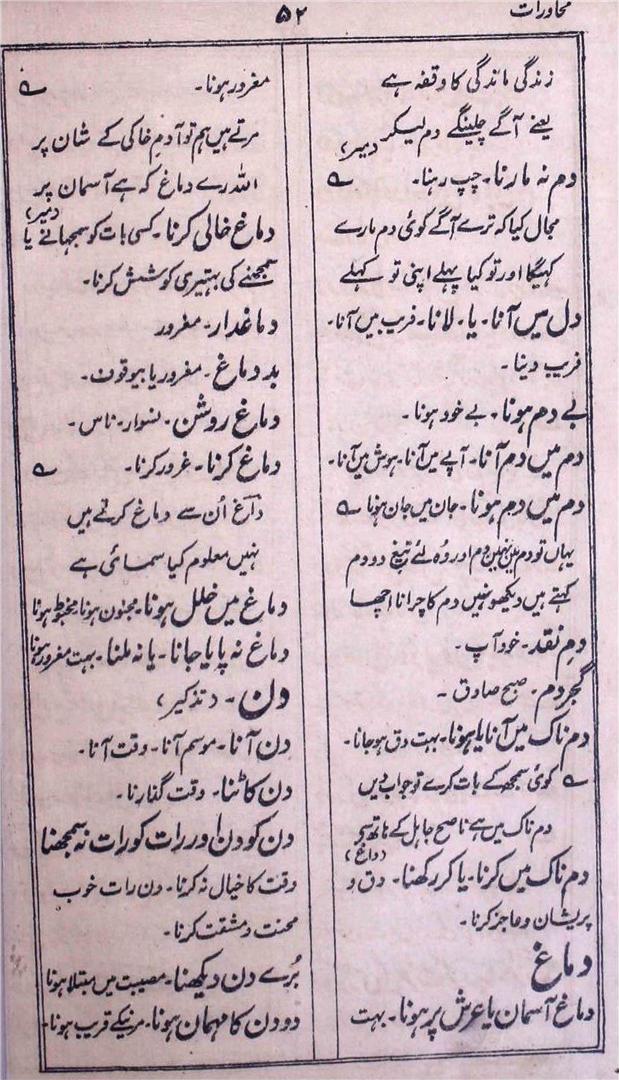 محاورات
۵۲
زندگی ماندگی کا وقفہ ہے
یعنے آگے چلینگے دم لیکر دبیر،
دم نہ مارنا۔ چپ رہنا۔ ؎
مجال کیا کہ ترے آگے کوئی دم مارے
کہیگا اور تو کیا پہلے اپنی تو کہلے
دل میں آنا۔ یا۔ لانا۔ فریب میں آنا۔
فریب دینا۔
بے دم ہونا۔ بے خود ہونا۔
دم میں دم آنا۔ آپے میں آنا۔ ہوش میں آنا۔
دم میں دم ہونا۔ جان میں جان ہونا ؎
یہاں تو دم میں نہیں دم اور وُہ لئے تیغ دو دم
کہتے ہیں دیکھو نہیں دم کا چرانا اچھا
دمِ نقد۔ خود آپ۔
گجر دم۔ صبح صادق۔
دم ناک میں آنا یا ہونا۔ بہت دق ہو جانا۔
؎ کوئی سمجھ کے بات کرے تو جواب دیں
دم ناک میں ہے ناصح جاہل کے ہاتھ سے
(داغ)
دم ناک میں کرنا۔ یا کر رکھنا۔ دق و
پریشان و عاجز کرنا۔
دماغ
دماغ آسمان یا عرش پر ہونا۔ بہت
مغرور ہونا۔ ؎
مرتے ہیں ہم تو آدمِ خاکی کے شان پر
اللہ رے دماغ کہ ہے آسمان پر
دبیر،
دماغ خالی کرنا۔ کسی بات کو سمجھانے یا
سمجھنے کی بہتیری کوشش کرنا۔
دماغدار۔ مغرور
بد دماغ۔ مغرور یا بیوقوف۔
دماغ روشن۔ نسوار۔ ناس۔
دماغ کرنا۔ غرور کرنا۔ ؎
داغ اُن سے دماغ کرتے ہیں
نہیں معلوم کیا سمائی ہے
دماغ میں خلل ہونا۔ مجنون ہونا مخبط ہونا
دماغ نہ پایا جانا۔ یا نہ ملنا۔ بہت مغرور ہونا
دن۔ (تذکیر)
دن آنا۔ موسم آنا۔ وقت آنا۔
دن کاٹنا۔ وقت گذارنا۔
دن کو دن اور رات کو رات نہ سمجھنا
وقت کا خیال نہ کرنا۔ دن رات خوب
محنت و مشقت کرنا۔
بُرے دن دیکھنا۔ مصیبت میں مبتلا ہونا
دو دن کا مہمان ہونا۔ مرنیکے قریب ہونا۔